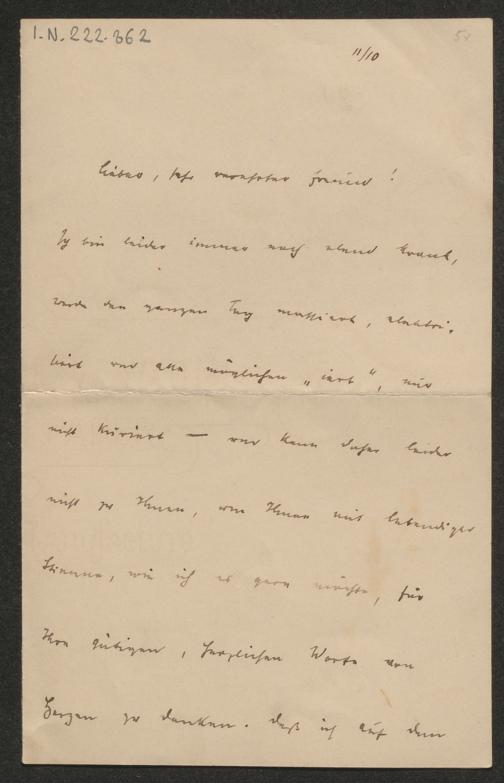 I.N. 222.862
11/10
lieber, sehr verehrter Freund!
Ich bin leider immer noch elend krank,
werde den ganzen Tag massiert, elektri-
siert und alle möglichen „iert“, nur
nicht kuriert — und kann daher leider
nicht zu Ihnen, um Ihnen mit lebendiger
Stimme, wie ich es gern möchte, für
Ihre gütigen, herzlichen Worte von
Herzen zu danken. Daß ich auf dem